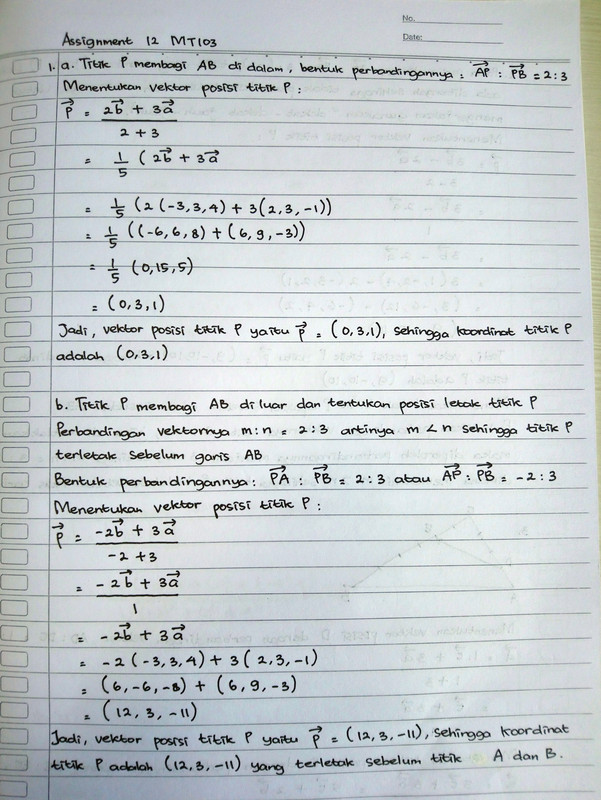 No.
Date:
Assignment 12 MT103
1. a. Titik P membagi AB di dalam, bentuk perbandingannya : AP⃗ : PB⃗ = 2:3
Menentukan vektor posisi titik P :
p⃗ = 2b⃗ + 3a⃗
2 + 3
= 1/5 ( 2b⃗ + 3a⃗
= 1/5 (2(-3,3,4) + 3(2,3,-1))
= 1/5 ((-6,6,8) + (6,9,-3))
= 1/5 (0,15,5)
= (0,3,1)
Jadi, vektor posisi titik P yaitu p⃗ = (0,3,1), sehingga koordinat titik P
adalah (0,3,1)
b. Titik P membagi AB di luar dan tentukan posisi letak titik P
Perbandingan vektornya m:n = 2:3 artinya m < n sehingga titik P
terletak sebelum garis AB
Bentuk perbandingannya : PA⃗ : PB⃗ = 2:3 atau AP⃗ : PB⃗ = -2:3
Menentukan vektor posisi titik P :
P⃗ = -2b⃗ + 3a⃗
-2 + 3
= -2b⃗ + 3a⃗
1
= -2b⃗ + 3a⃗
= -2(-3,3,4) + 3(2,3,-1)
= (6,-6,-8) + (6,9,-3)
= (12,3,-11)
Jadi, vektor posisi titik P yaitu p⃗ = (12,3,-11), sehingga koordinat
titik P adalah (12,3,-11) yang terletak sebelum titik A dan B.